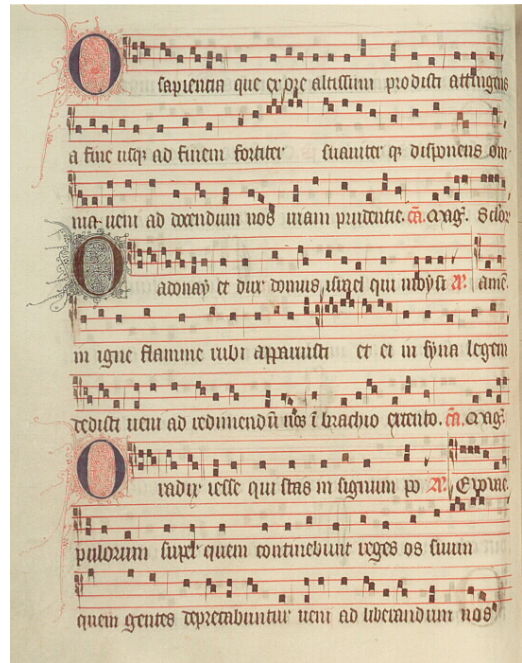 O sapientia que ex ore altissimi prodisti attingens
a fine usq; ad finem fortiter suauiter q; disponens om
nia ueni ad docendum nos uiam prudentie. Mag.
O adonay et dux domus israel qui moysi amē.
in igne flamme rubi apparuisti et ei in syna legem
dedisti ueni ad redimendū nos ī brachio extento. Mag.
O radix iesse qui stas in signum po
pulorum super quem continebunt reges os suum
quem gentes deprecabuntur ueni ad liberandum nos